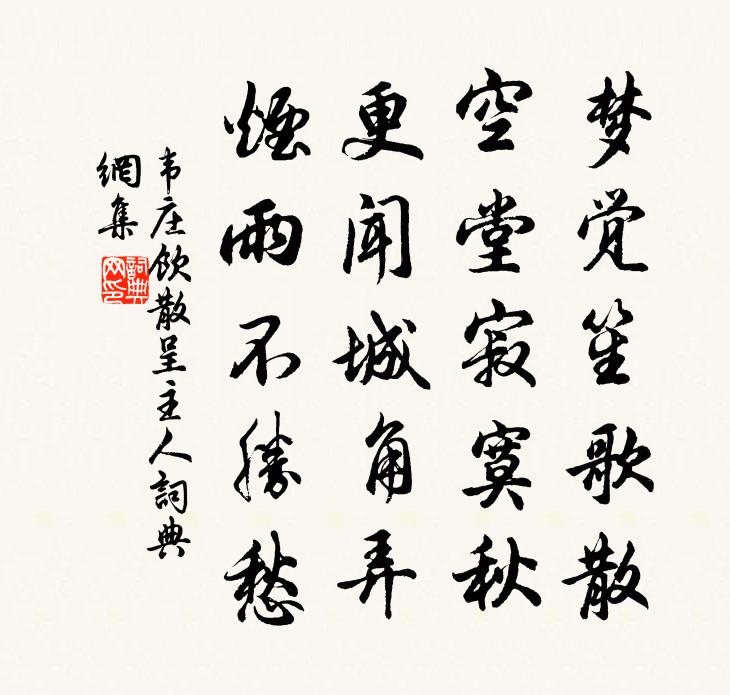 梦觉笙歌散
空堂寂寞秋
更闻城角弄
煙雨不勝愁
韦庄飲散呈主人詞典
網集
詞典网印